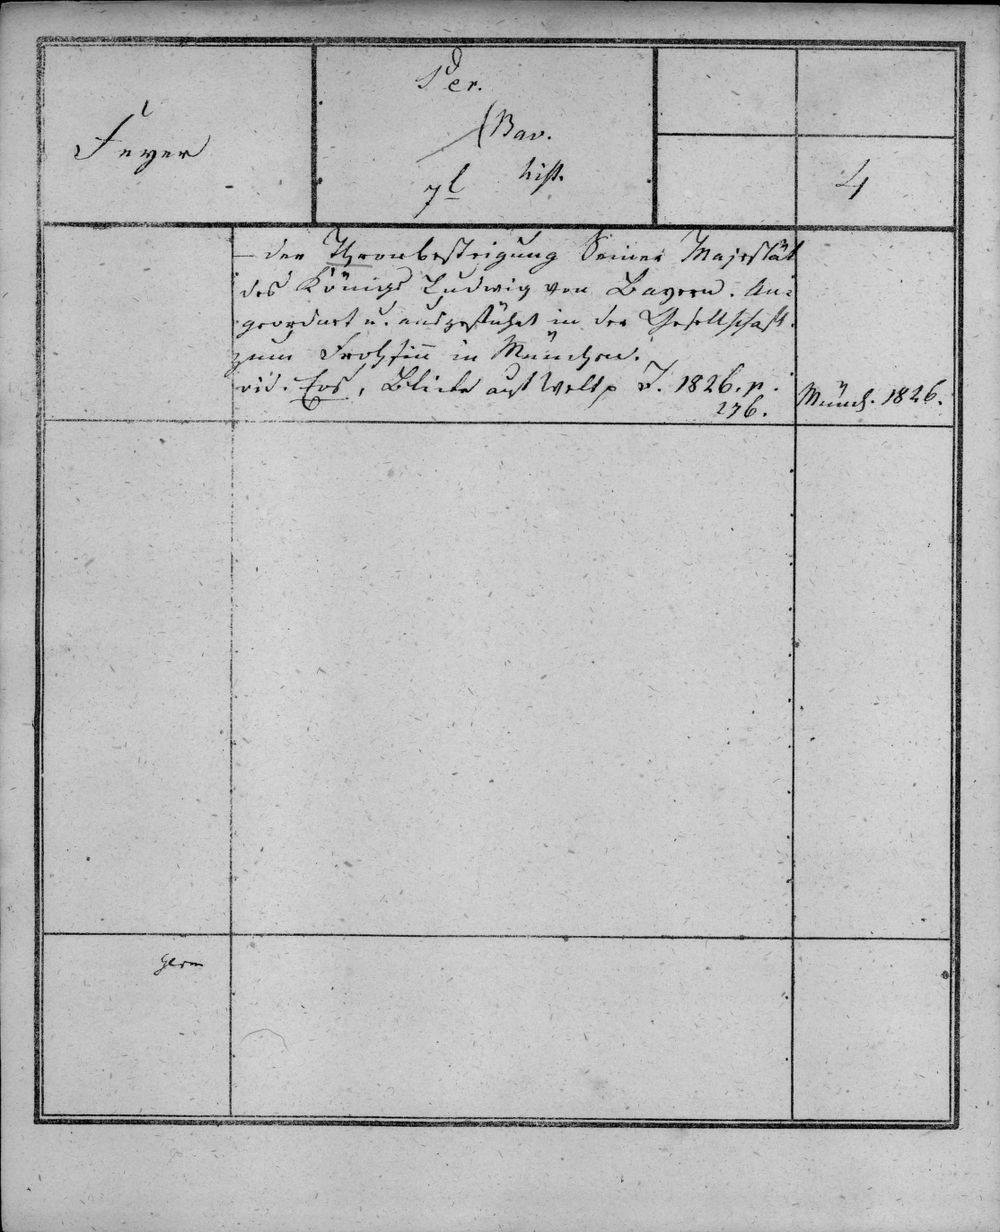 Per.
Feyer
Bav.
hist.
7l
4
– der Thronbesteigung Seiner Majestät
des Königs Ludwig von Bayern. An-
geordnet u. ausgeführt in der Gesellschaft
zum Frohsinn in München.
vid. Eos, Blicke auf Welt p J. 1826. p.
276.
Münch. 1826.
Germ